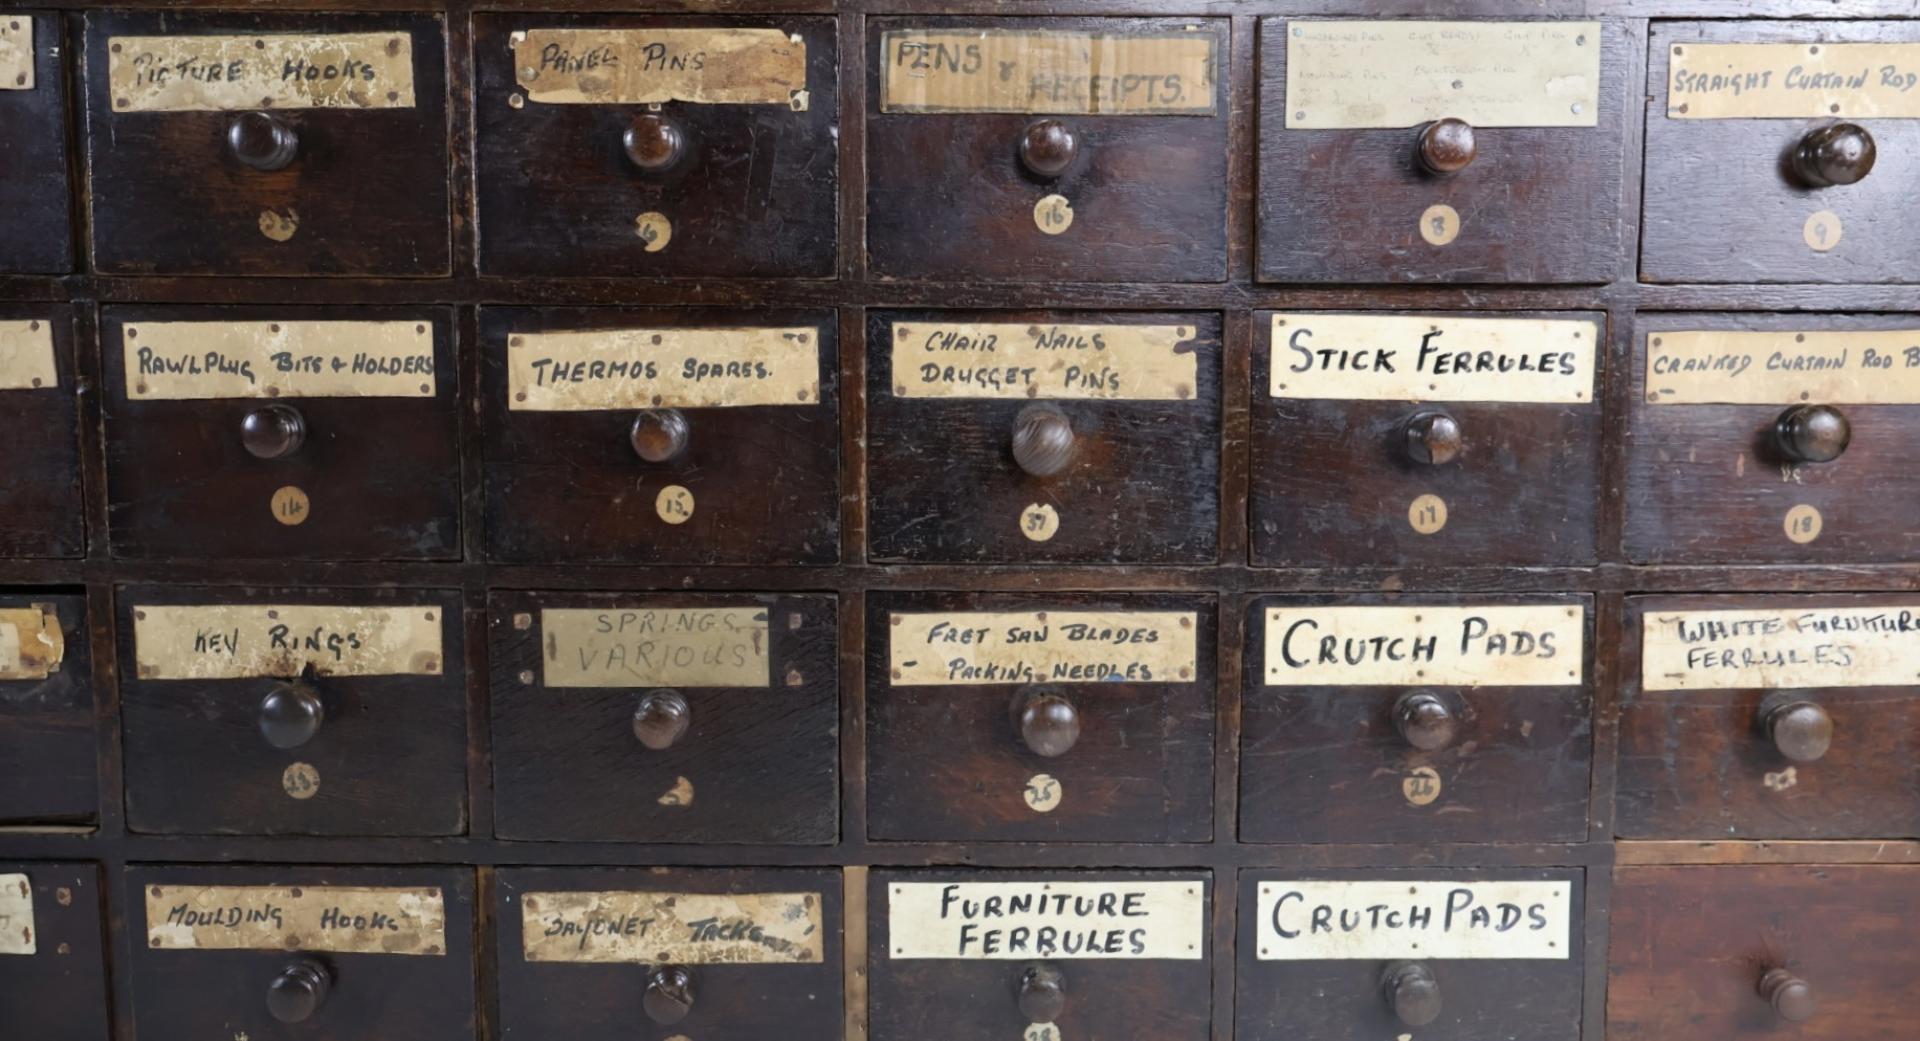 PICTURE HOOKS
PANEL PINS
PENS & RECEIPTS.
STRAIGHT CURTAIN ROD
6
16
8
9
RAWLPLUG BITS & HOLDERS
THERMOS SPARES.
CHAIR NAILS
DRUGGET PINS
STICK FERRULES
CRANKED CURTAIN ROD B
14
15
37
17
18
KEY RINGS
SPRINGS
VARIOUS
FRET SAW BLADES
PACKING NEEDLES
CRUTCH PADS
WHITE FURNITURE
FERRULES
23
25
26
MOULDING HOOKS
BAYONET TACKS
FURNITURE
FERRULES
CRUTCH PADS
28